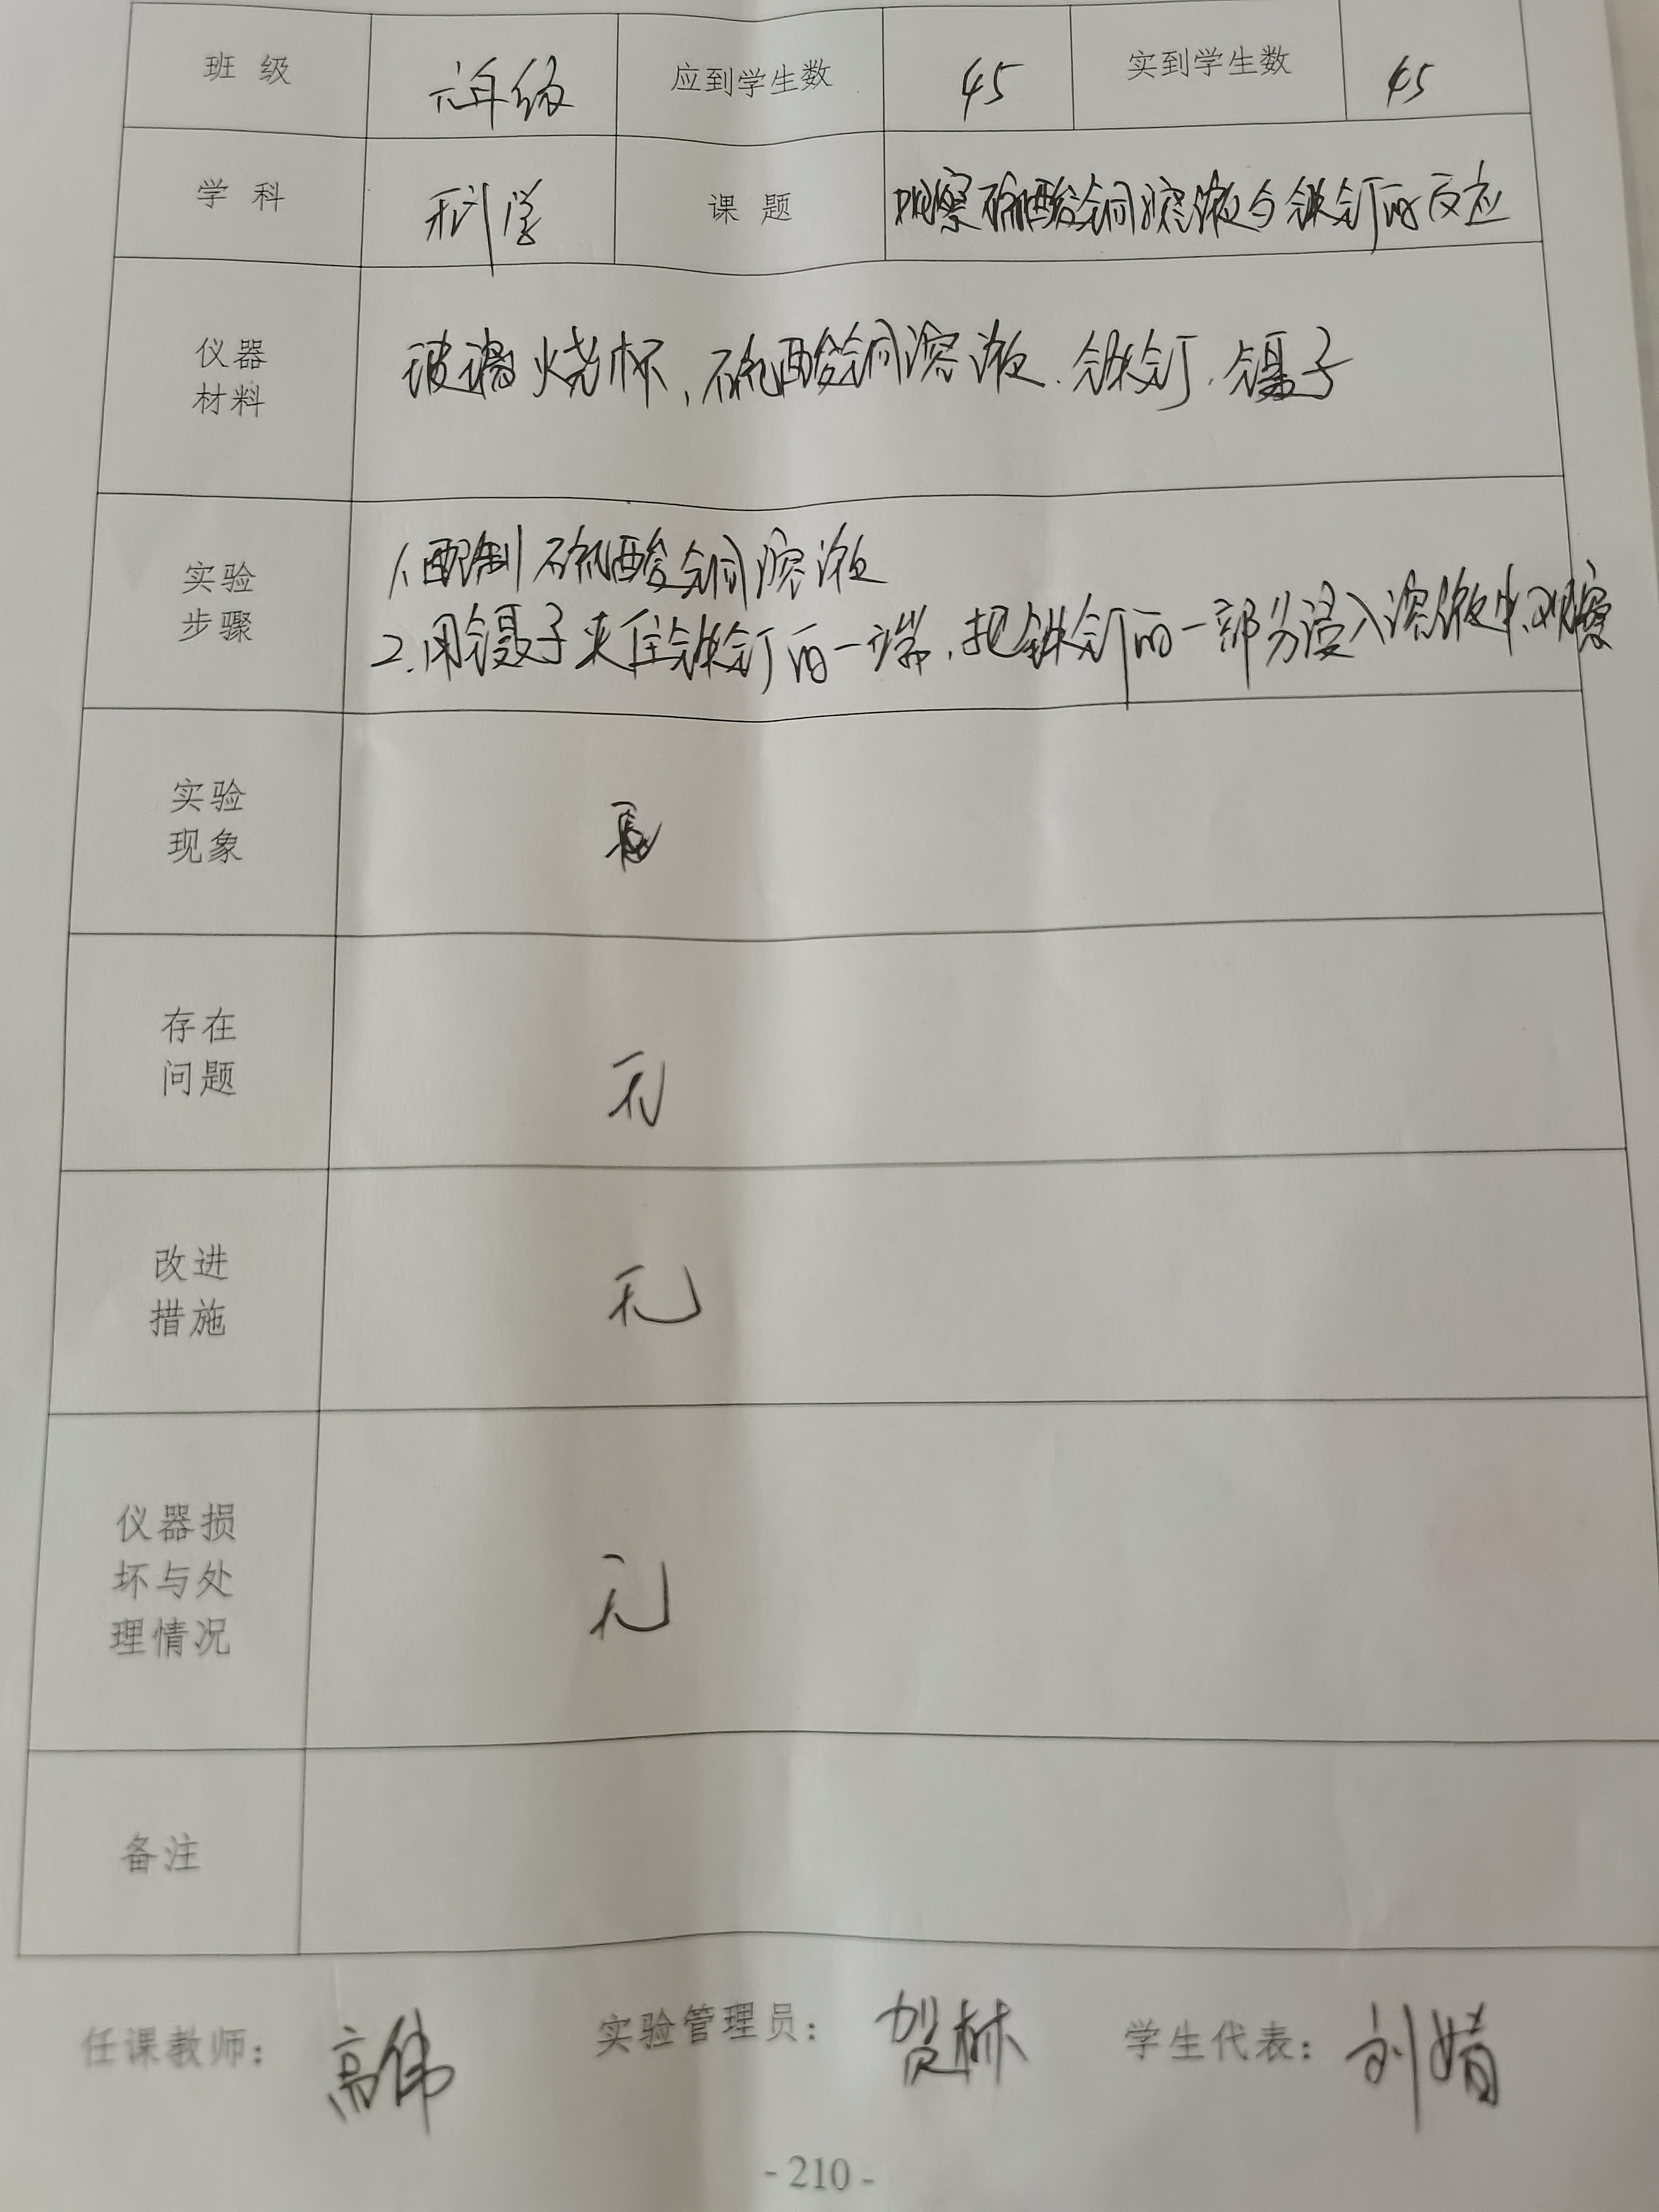 班级 六年级 应到学生数 45 实到学生数 45
学科 科学 课题 观察硫酸铜溶液与铁钉的反应
仪器
材料
玻璃烧杯、硫酸铜溶液、铁钉、镊子
实验
步骤
1、配制硫酸铜溶液
2、用镊子夹住铁钉的一端,把铁钉的一部分浸入溶液中,观察
实验
现象
存在
问题
无
改进
措施
无
仪器损
坏与处
理情况
无
备注
任课教师: 高伟 实验管理员: 贺林 学生代表: 刘婧
-210-